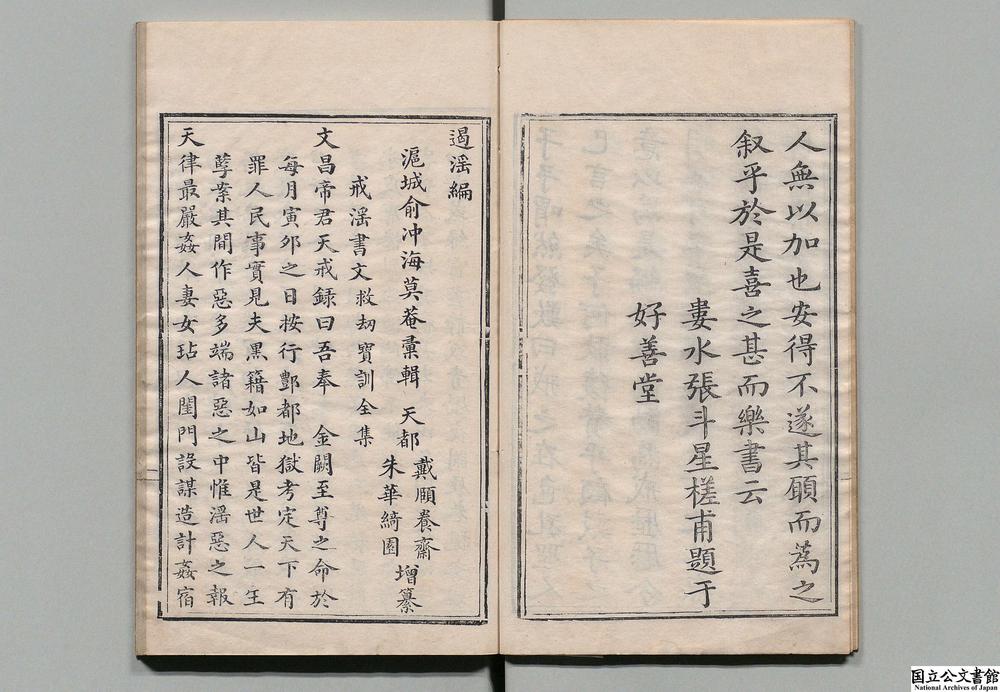 人無以加也安得不遂其願而為之
叙乎於是喜之甚而樂書云
婁水張斗星槎甫題于
好善堂
遏滛編
滬城俞冲海莫菴彙輯 天都 戴願養齋 朱華綺園 增纂
戒滛書文救劫寶訓全集
文昌帝君天戒録曰吾奉 金闕至尊之命於
每月寅夘之日按行酆都地獄考定天下有
罪人民事實見夫黑籍如山皆是世人一生
孽案其間作惡多端諸惡之中惟滛惡之報
天律最嚴姦人妻女玷人閨門設謀造計姦宿
国立公文書館
National Archives of Japan